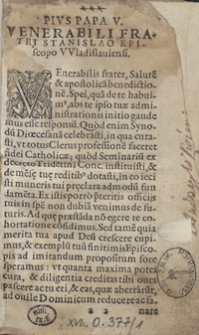 PIVS PAPA V.
VENERABILI FRA-
TRI STANISLAO EPI-
scopo VVladislauiensi.
VEnerabilis frater, Salutē
& apostolicā benedictio-
nē. Spei, quā de te habui-
mus, abs te ipso tuæ admi-
nistrationis initio gaude-
mus esse responsū. Quòd enim Syno-
dū Diœcesanā celebrasti, in qua cura-
sti, vt totus Clerus professionē faceret
fidei Catholicæ; quòd Seminariū ex
decreto Tridentini Conc. instituisti, &
de mēsę tuę reditib⁹ dotasti, in eo iecisti
muneris tui pręclara admodū fun-
damēta. Ex istis porrò pręteritis officiis
tuis in spē non dubiā venimus de fu-
turis. Ad quę pręstāda nō egere te co-
hortatione cōfidimus. Sed tamē quia
merita tua apud Deū crescere cupi-
mus, & exemplū tuū finitimis Episco-
pis ad imitandum propositum fore
speramus: vt quanta maxima potes
cura, & diligentia creditas tibi oues
pascere
actu eri, & eas, quæ aberrāsst,
ad ouile Dominicum reducere ac sa-
a 2
nare
XVI. O. 377/1